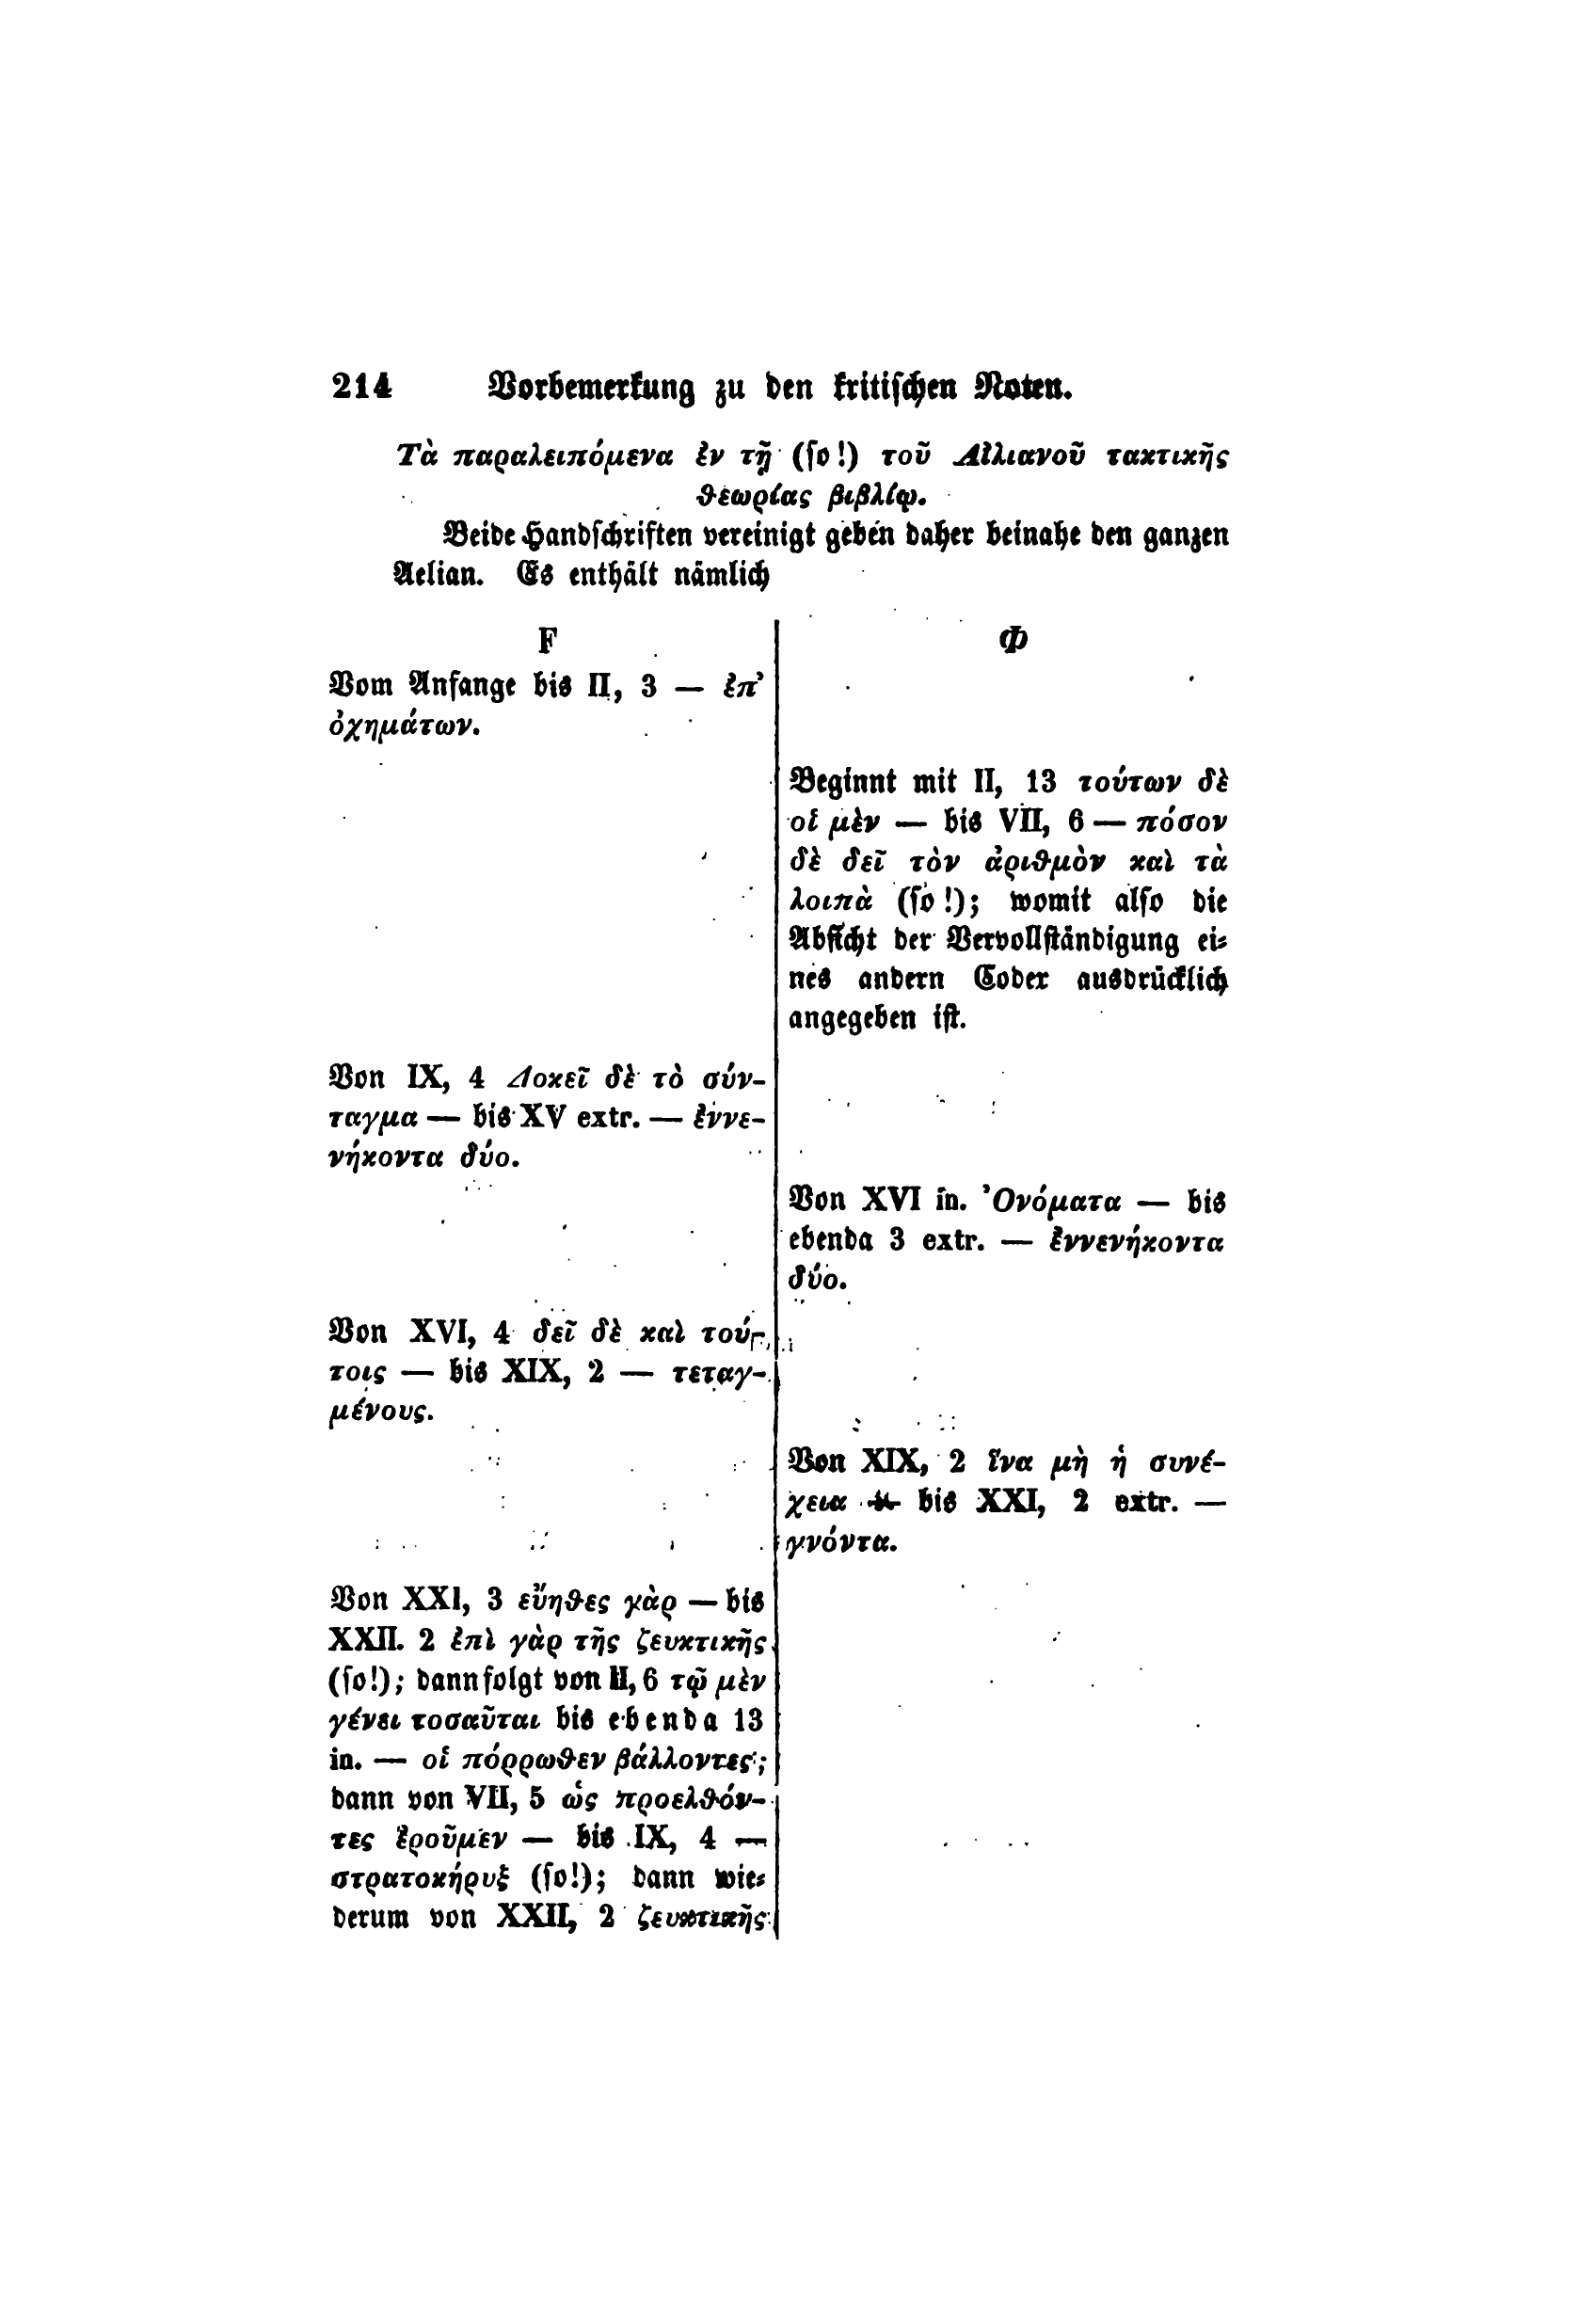 214 Vorbemerkung zu den kritischen Noten.
Τὰ παραλειπόμενα ἐν τῇ (so!) τοῦ Αἰλιανοῦ τακτικῆς
θεωρίας βιβλίῳ.
Beide Handschriften vereinigt geben daher beinahe den ganzen
Aelian. Es enthält nämlich
F
Vom Anfange bis II, 3 — ἐπ’
ὀχημάτων.
Φ
Beginnt mit II, 13 τούτων δὲ
οἱ μὲν — bis VII, 6 — πόσον
δὲ δεῖ τὸν ἀριθμὸν καὶ τὰ
λοιπὰ (so!); womit also die
Absicht der Vervollständigung ei-
nes andern Codex ausdrücklich
angegeben ist.
Von IX, 4 Δοκεῖ δὲ τὸ σύν-
ταγμα — bis XV extr. — ἐννε-
νήκοντα δύο.
Von XVI in. Ὀνόματα — bis
ebenda 3 extr. — ἐννενήκοντα
δύο.
Von XVI, 4 δεῖ δὲ καὶ τού-
τοις — bis XIX, 2 — τεταγ-
μένους.
Von XIX, 2 ἵνα μὴ ἡ συνέ-
χεια — bis XXI, 2 extr. —
γνόντα.
Von XXI, 3 εὔηθες γὰρ — bis
XXII. 2 ἐπὶ γὰρ τῆς ζευκτικῆς
(so!); dann folgt von II, 6 τῷ μὲν
γένει τοσαῦται bis ebenda 13
in. — οἱ πόῤῥωθεν βάλλοντες;
dann von VII, 5 ὡς προελθόν-
τες ἐροῦμεν — bis IX, 4 —
στρατοκήρυξ (so!); dann wie-
derum von XXII, 2 ζευκτικῆς